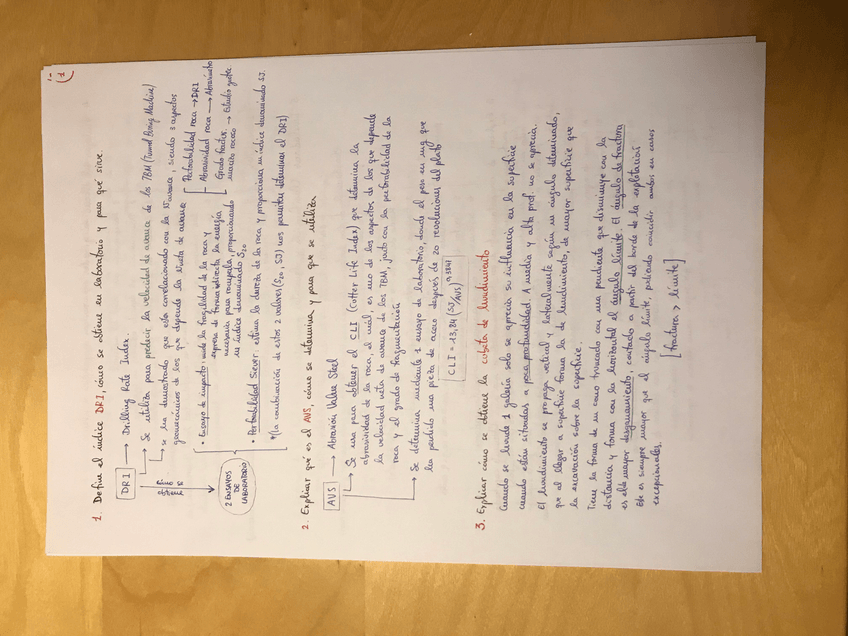 1. Define el índice DRI, cómo se obtiene en laboratorio y para qué sirve.
DRI → Drilling Rate Index.
→ Se utiliza para predecir la velocidad de avance de las TBM (Tunnel Boring Machine)
→ se ha demostrado que está correlacionado con la Vavance, siendo 3 aspectos
geomecánicos de los que depende la Vneta de avance
Perforabilidad roca → DRI
Abrasividad roca → Abrasividad
Grado fractur. → Estudio geotec
macizo rocoso
cómo se obtiene
2 ENSAYOS DE LABORATORIO
• Ensayo de impacto: mide la fragilidad de la roca y
expresa de forma indirecta la energía
necesaria para romperla, proporcionando
un índice denominado S20
• Perforabilidad Siever: estima la dureza de la roca y proporciona un índice denominado SJ.
*(la combinación de estos 2 valores (S20, SJ) nos permiten determinar el DRI)
2. Explicar qué es el AVS, cómo se determina y para que se utiliza
AVS → Abrasion Value Steel
→ Se usa para obtener el CLI (Cutter Life Index) que determina la
abrasividad de la roca, el cuál, es uno de los aspectos de los que depende
la velocidad neta de avance de las TBM, junto con la perforabilidad de la
roca y el grado de fragmentación
→ Se determina mediante 1 ensayo de laboratorio, donde el peso en mg que
ha perdido una pieza de acero después de 20 revoluciones del plato
CLI = 13,84 (SJ/AVS)^0.3847
3. Explicar cómo se obtiene la cubeta de hundimiento
Cuando se hunde 1 galería solo se aprecia su influencia en la superficie
cuando están situadas a poca profundidad. A media y alta prof. no se aprecia.
El hundimiento se propaga vertical y lateralmente según un ángulo determinado,
que al llegar a superficie forma la de hundimiento, de mayor superficie que
la excavación sobre la superficie.
Tiene la forma de un cono truncado con una pendiente que disminuye con la
distancia y forma con la horizontal el ángulo límite. El ángulo de fractura
es el de mayor desgarramiento, contado a partir del borde de la explotación
Éste es siempre mayor que el ángulo límite, pudiendo coincidir ambos en casos
excepcionales.
[fractura > límite]